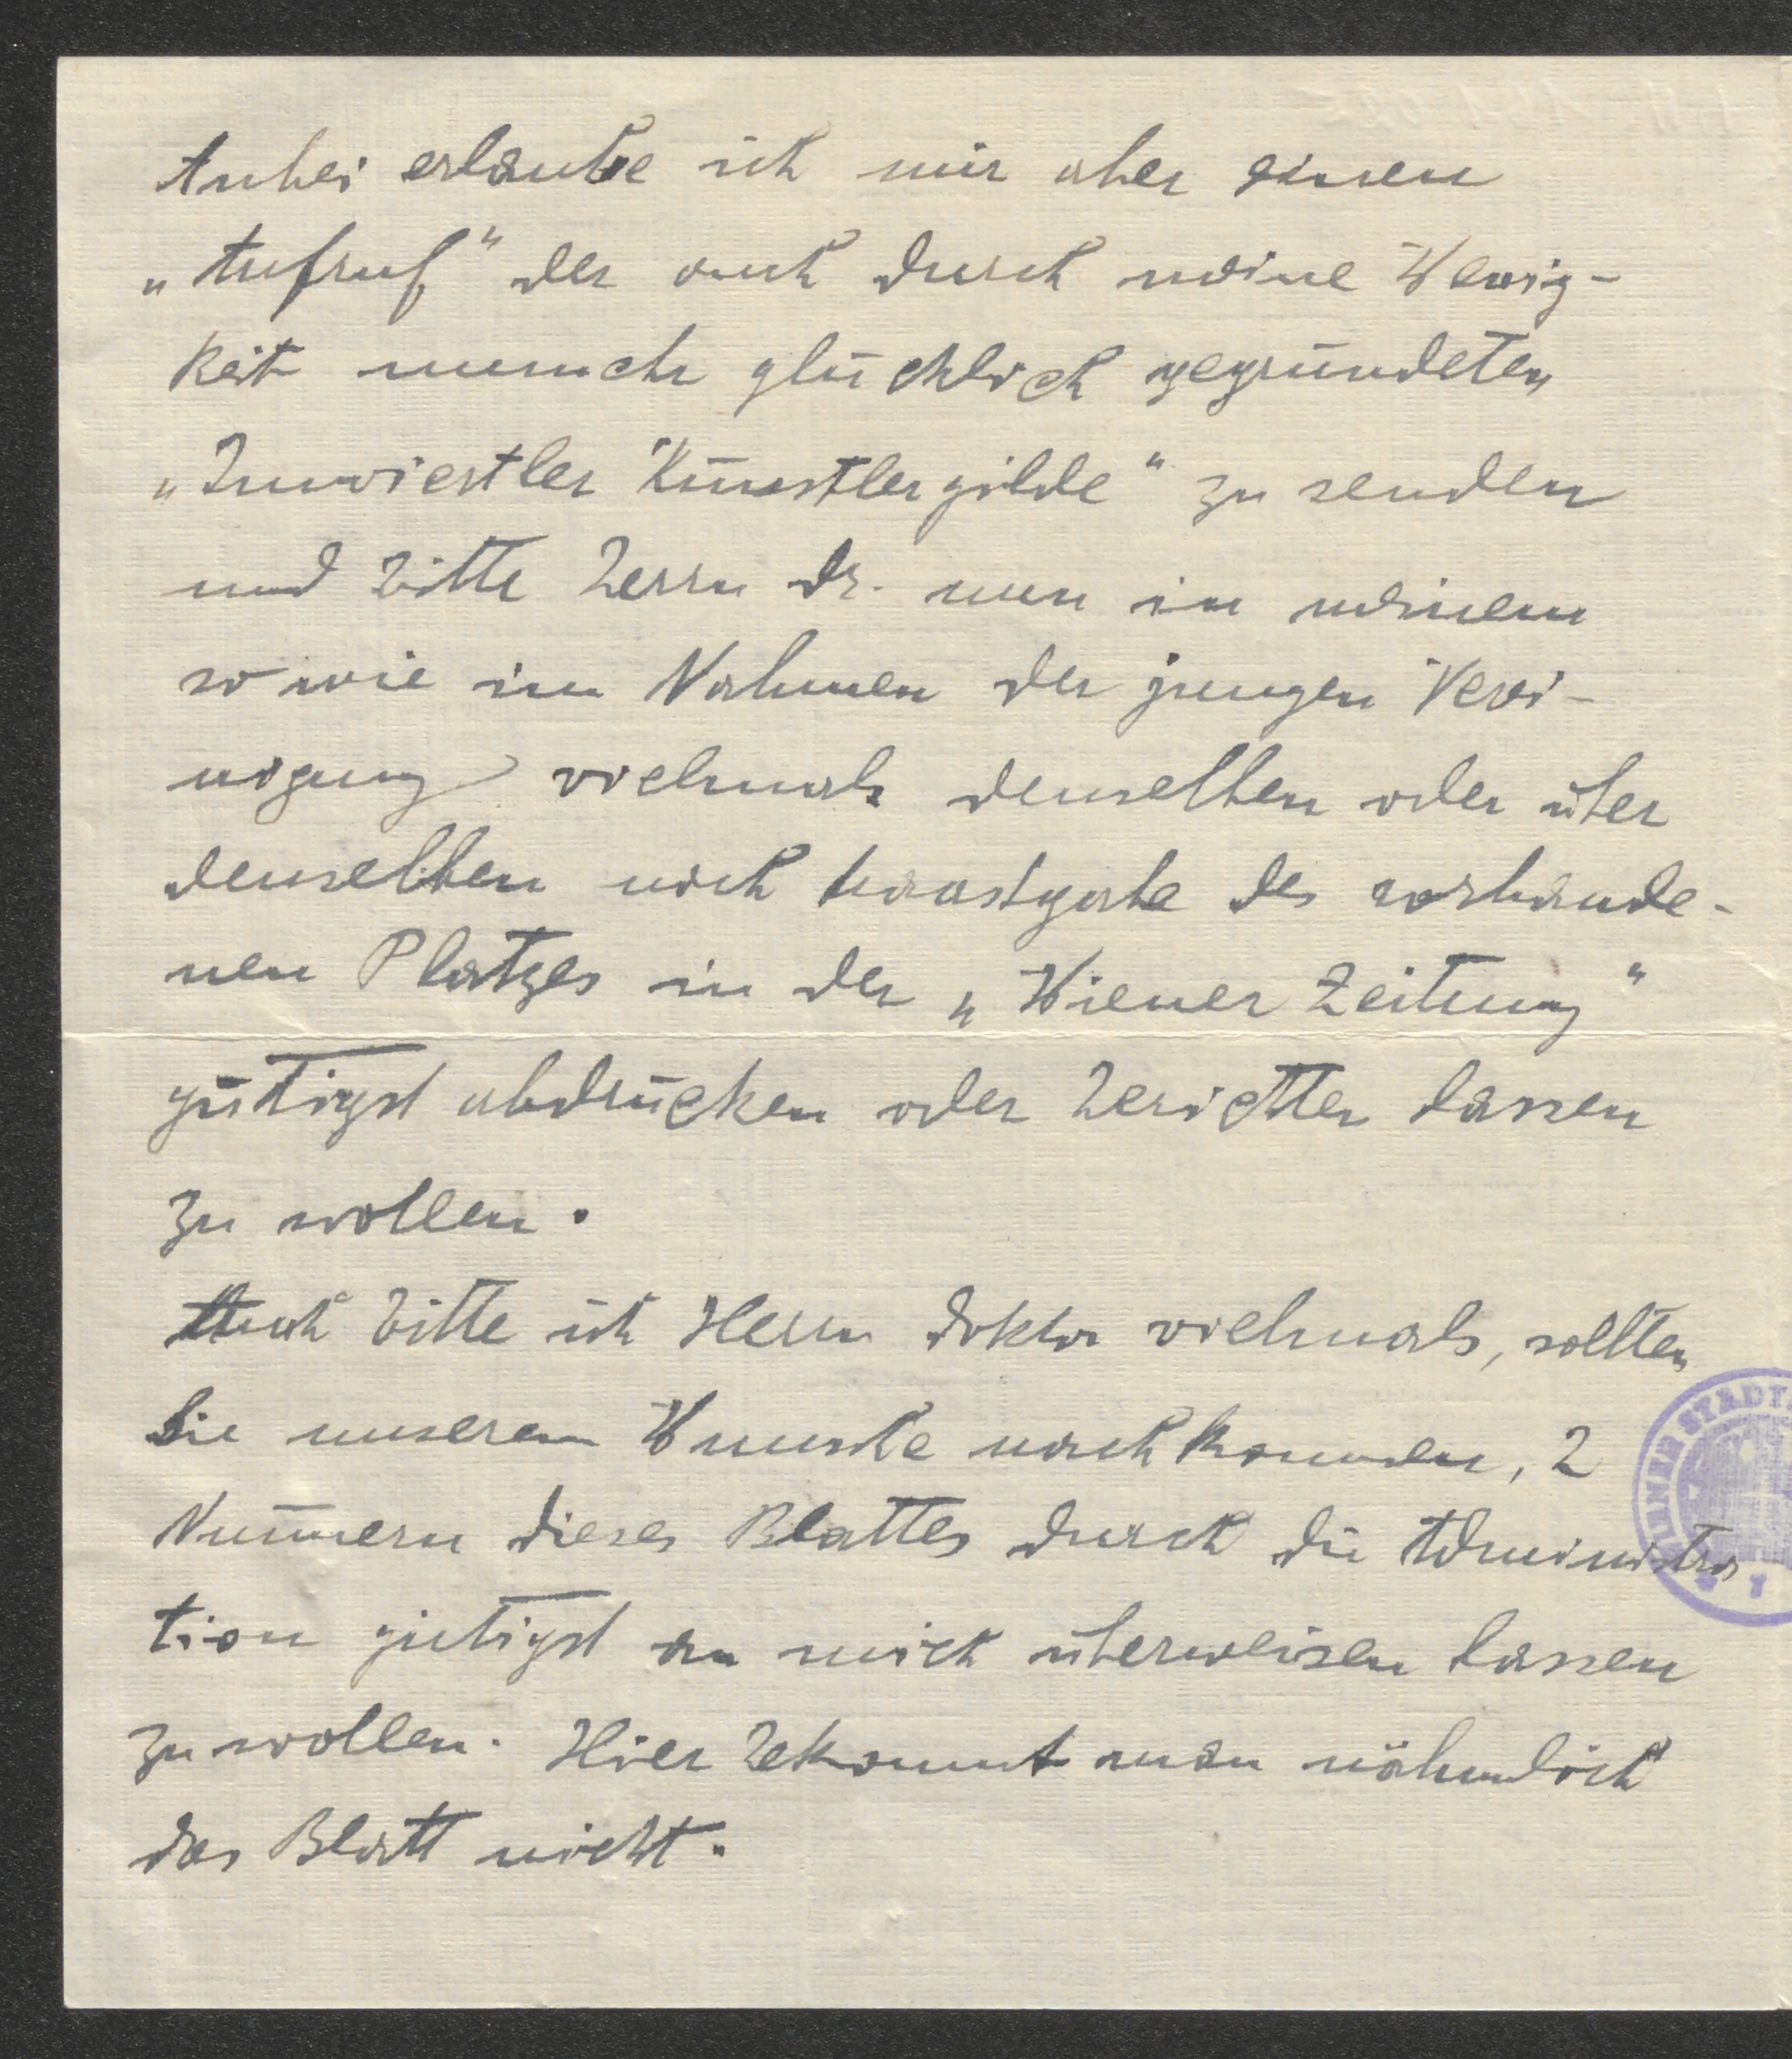 Anbei erlaube ich mir aber einen
„Aufruf“ der auch durch meine Wenig-
keit nunmehr glücklich gegründeten
„Innviertler Künstlergilde“ zu senden
und bitte Herrn Dr. nun in meinem
sowie im Nahmen der jungen Verei-
nigung vielmals denselben oder über
denselben nach Maastgabe des vorhande-
nen Platzes in der „Wiener Zeitung“
gütigst abdrücken oder berichten lassen
zu wollen.
Auch bitte ich Herrn Doktor vielmals, sollten
Sie unserem Wunsche nachkommen, 2
Nummern dieses Blattes durch die Administra
tion gütigst an mich überweisen lassen
zu wollen. Hier bekommt man nähmlich
das Blatt nicht.